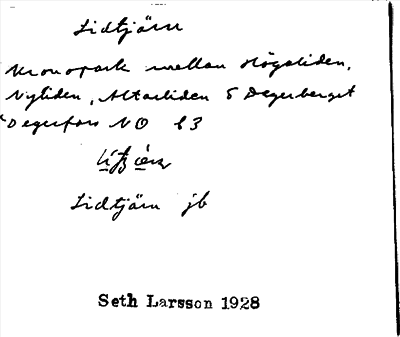 Lidtjärn
Kronopark mellan Högaliden,
Nyliden, Altarliden & Degerberget
Degerfors NO b3
Lidtjärn jb
Seth Larsson 1928